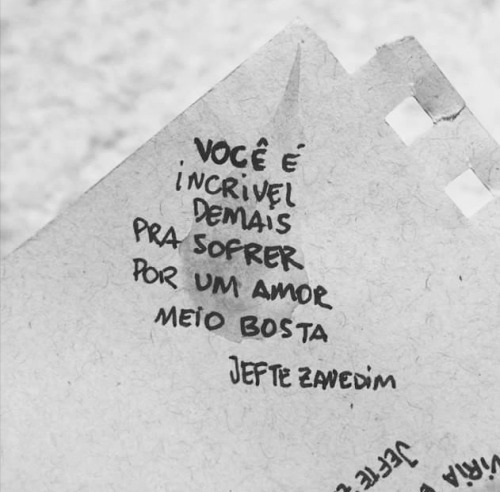 VOCÊ É
INCRIVEL
DEMAIS
PRA SOFRER
POR UM AMOR
MEIO BOSTA
JEFTE ZANEDIM
JEFTE
VIRIA